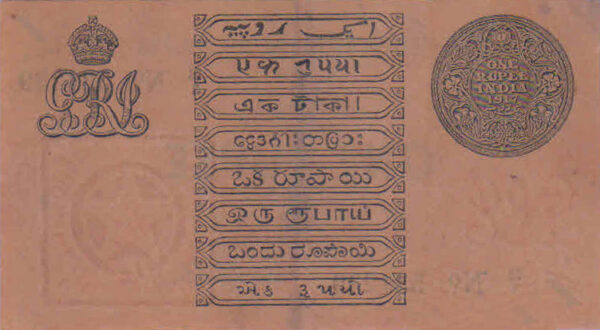 GRI
ایک روپیہ
एक रुपया
এক টাকা।
ငွေဒင်္ဂါးတပြား
ఒక రూపాయి
ஒரு ரூபாய்
ಒಂದು ರೂಪಾಯಿ
એક રૂપયો
ONE
RUPEE
INDIA
1917